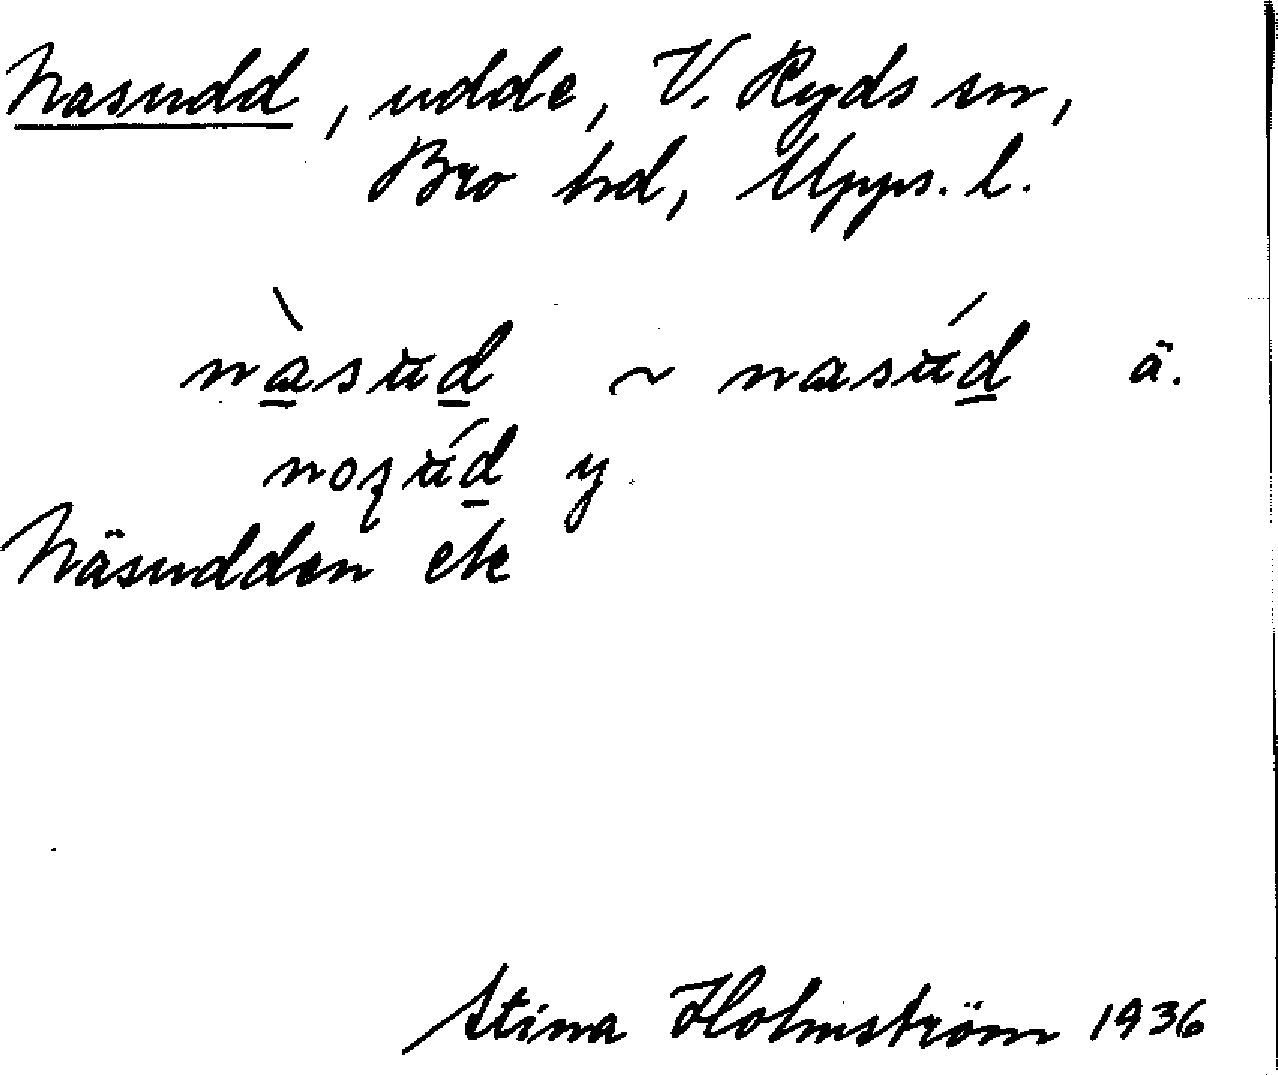 Nasudd, udde, V. Ryds sn,
Bro hd, Upps. l.
nàsud ~ nasúd ä.
nozúd y
Näsudden ek
Stina Holmström 1936